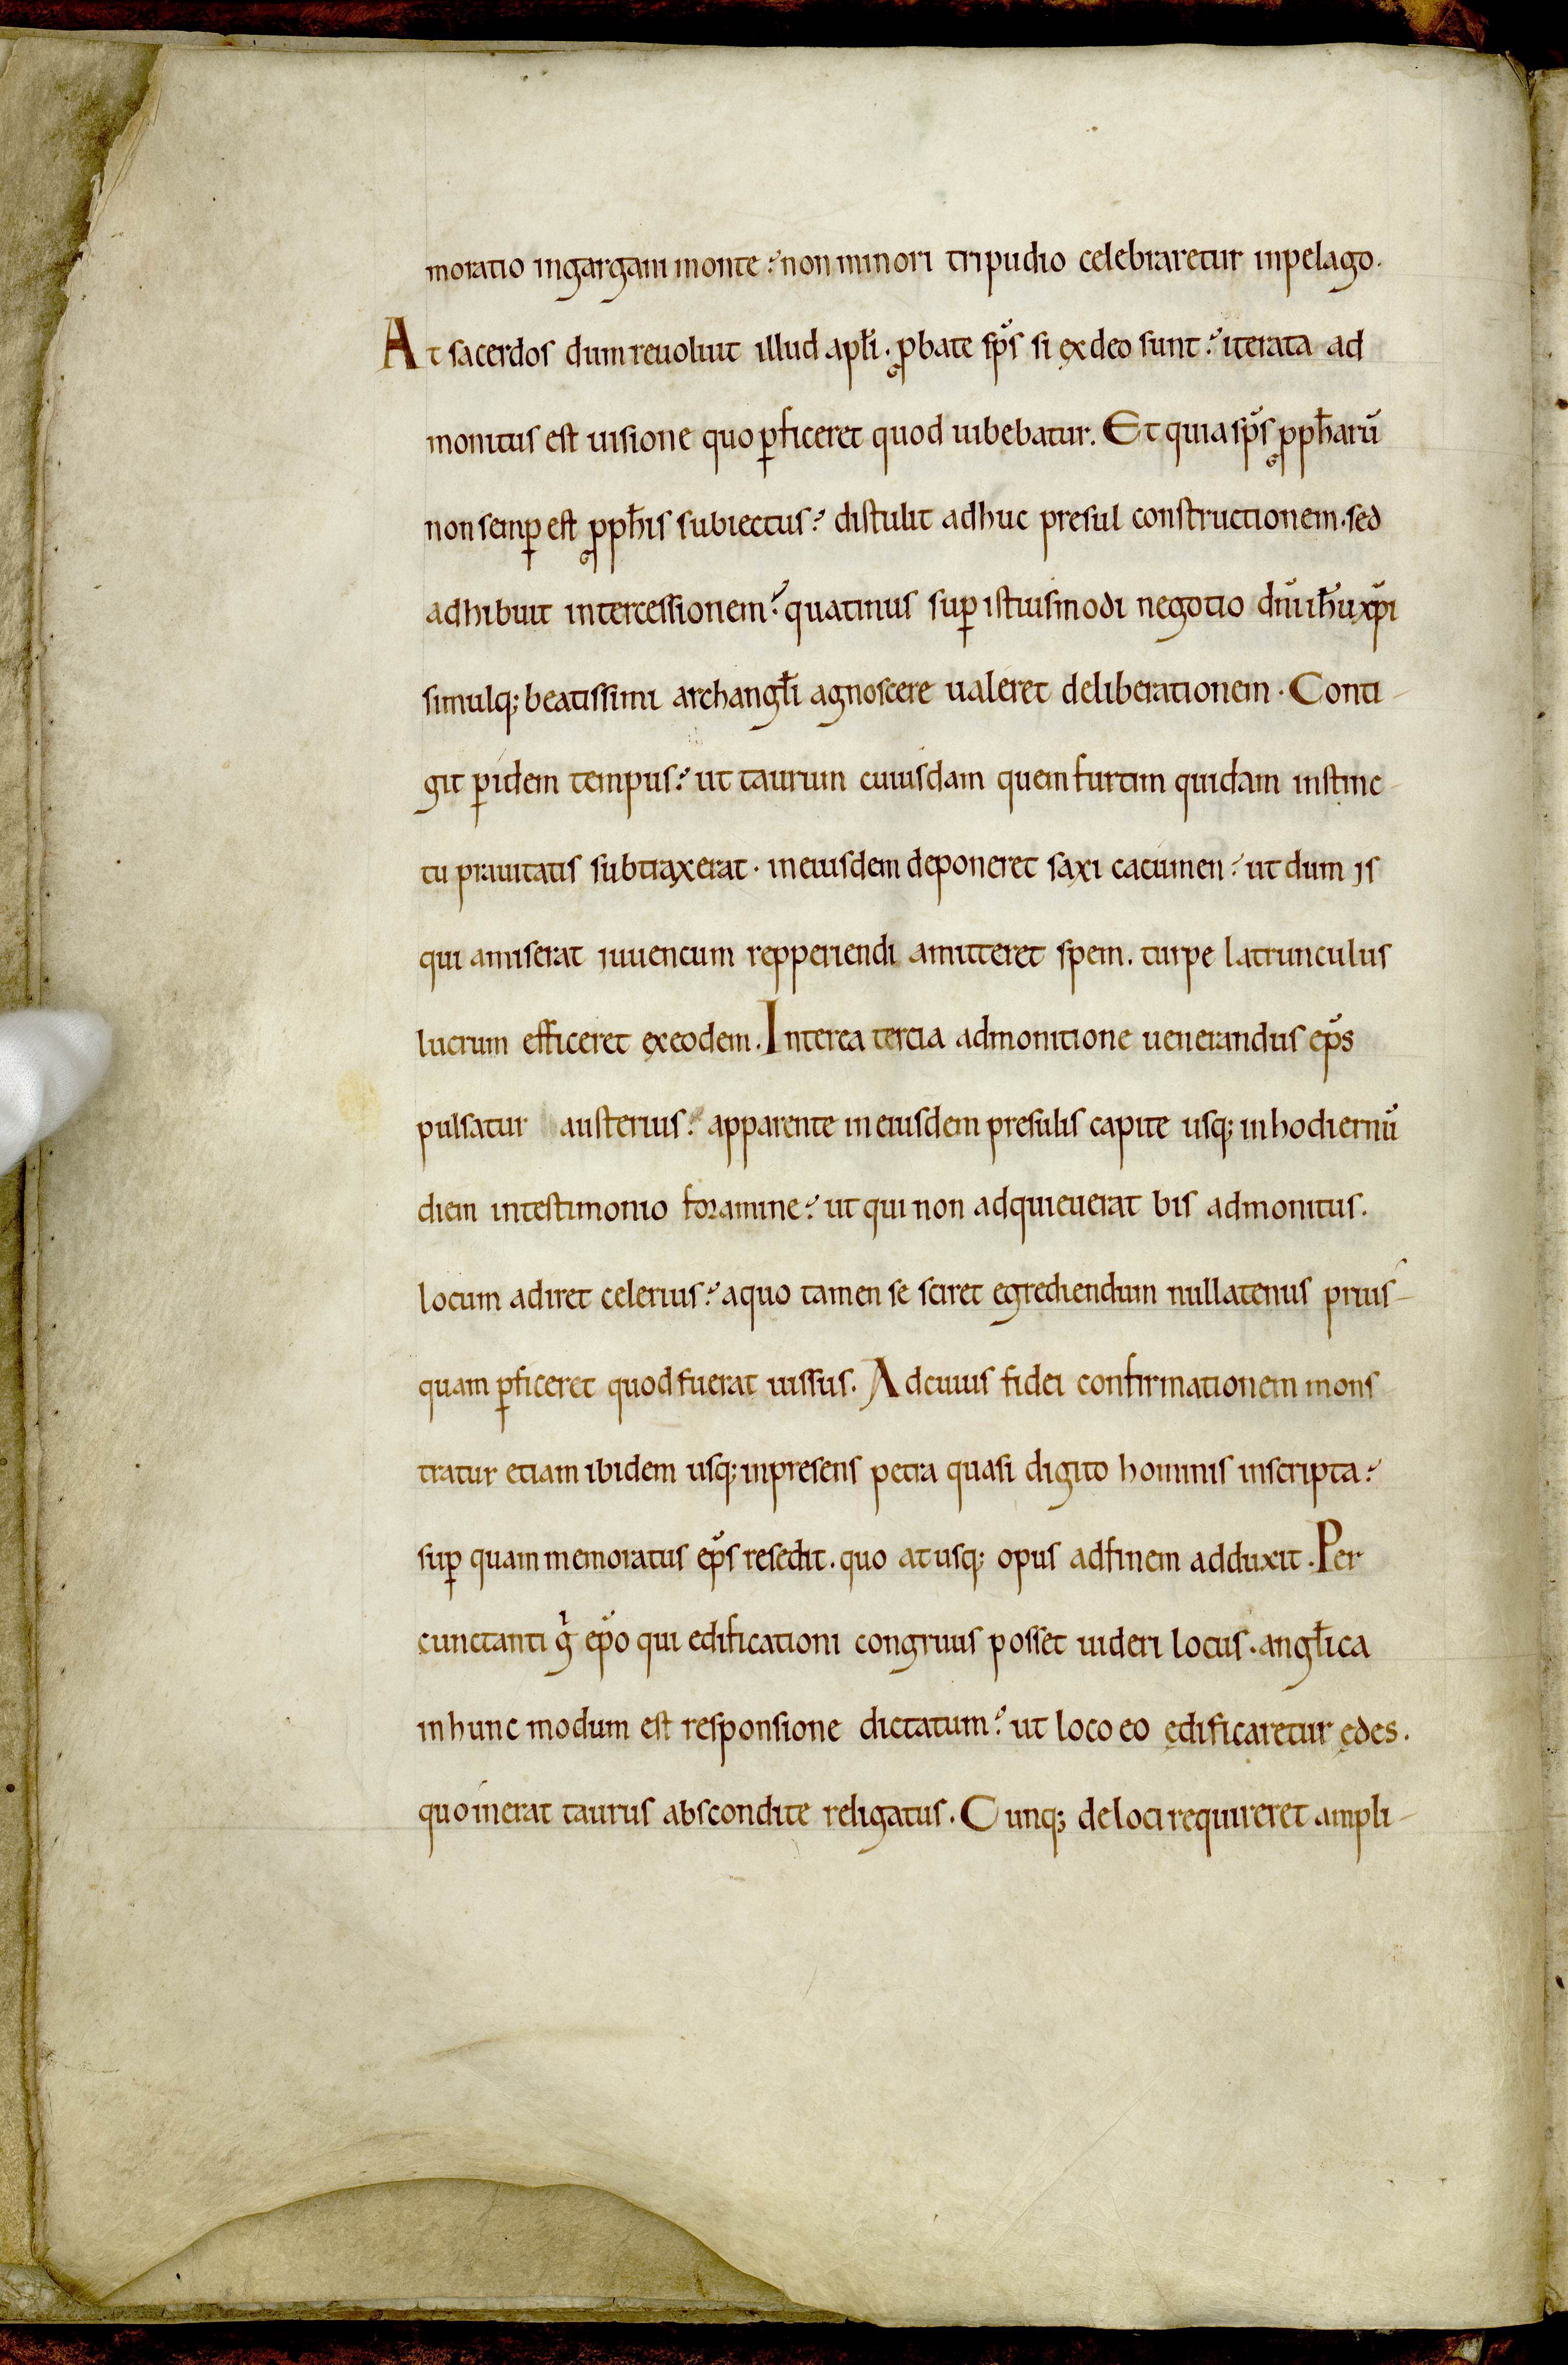 moratio ingargani monte? non minori tripudio celebraretur inpelago.
At sacerdos dum reuoluit illud apłi. ꝓbate sp̄s si ex deo sunt? iterata ad
monitus est uisione quo ꝑficeret quod iubebatur. Et quia sp̄s ꝓpħarū
non semꝑ est ꝓpħis subiectus? distulit adhuc presul constructionem. sed
adhibuit intercessionem? quatinus suꝑ istiusmodi negotio dn̄i ihū xp̄i
simulq; beatissimi archangłi agnoscere ualeret deliberationem. Conti-
git ꝑ idem tempus? ut taurum cuiusdam quem furtim quidam instinc-
tu prauitatis subtraxerat. in eiusdem deponeret saxi cacumen? ut dum is
qui amiserat iuuencum repperiendi amitteret spem. turpe latrunculus
lucrum efficeret exeodem. Interea tercia admonitione uenerandus ep̄s
pulsatur austerius? apparente in eiusdem presulis capite usq; in hodiernū
diem intestimonio foramine? ut qui non adquieuerat bis admonitus.
locum adiret celerius? aquo tamen se sciret egrediendum nullatenus prius-
quam ꝑficeret quod fuerat iussus. Adcuius fidei confirmationem mons
tratur etiam ibidem usq; inpresens petra quasi digito hominis inscripta?
suꝑ quam memoratus ep̄s resedit. quo at usq; opus adfinem adduxit. Per
cunctanti gͥ ep̄o qui edificationi congruus posset uideri locus. angłica
inhunc modum est responsione dictatum? ut loco eo ędificaretur ędes.
quo inerat taurus abscondite religatus. Cunq; de loci requireret ampli-